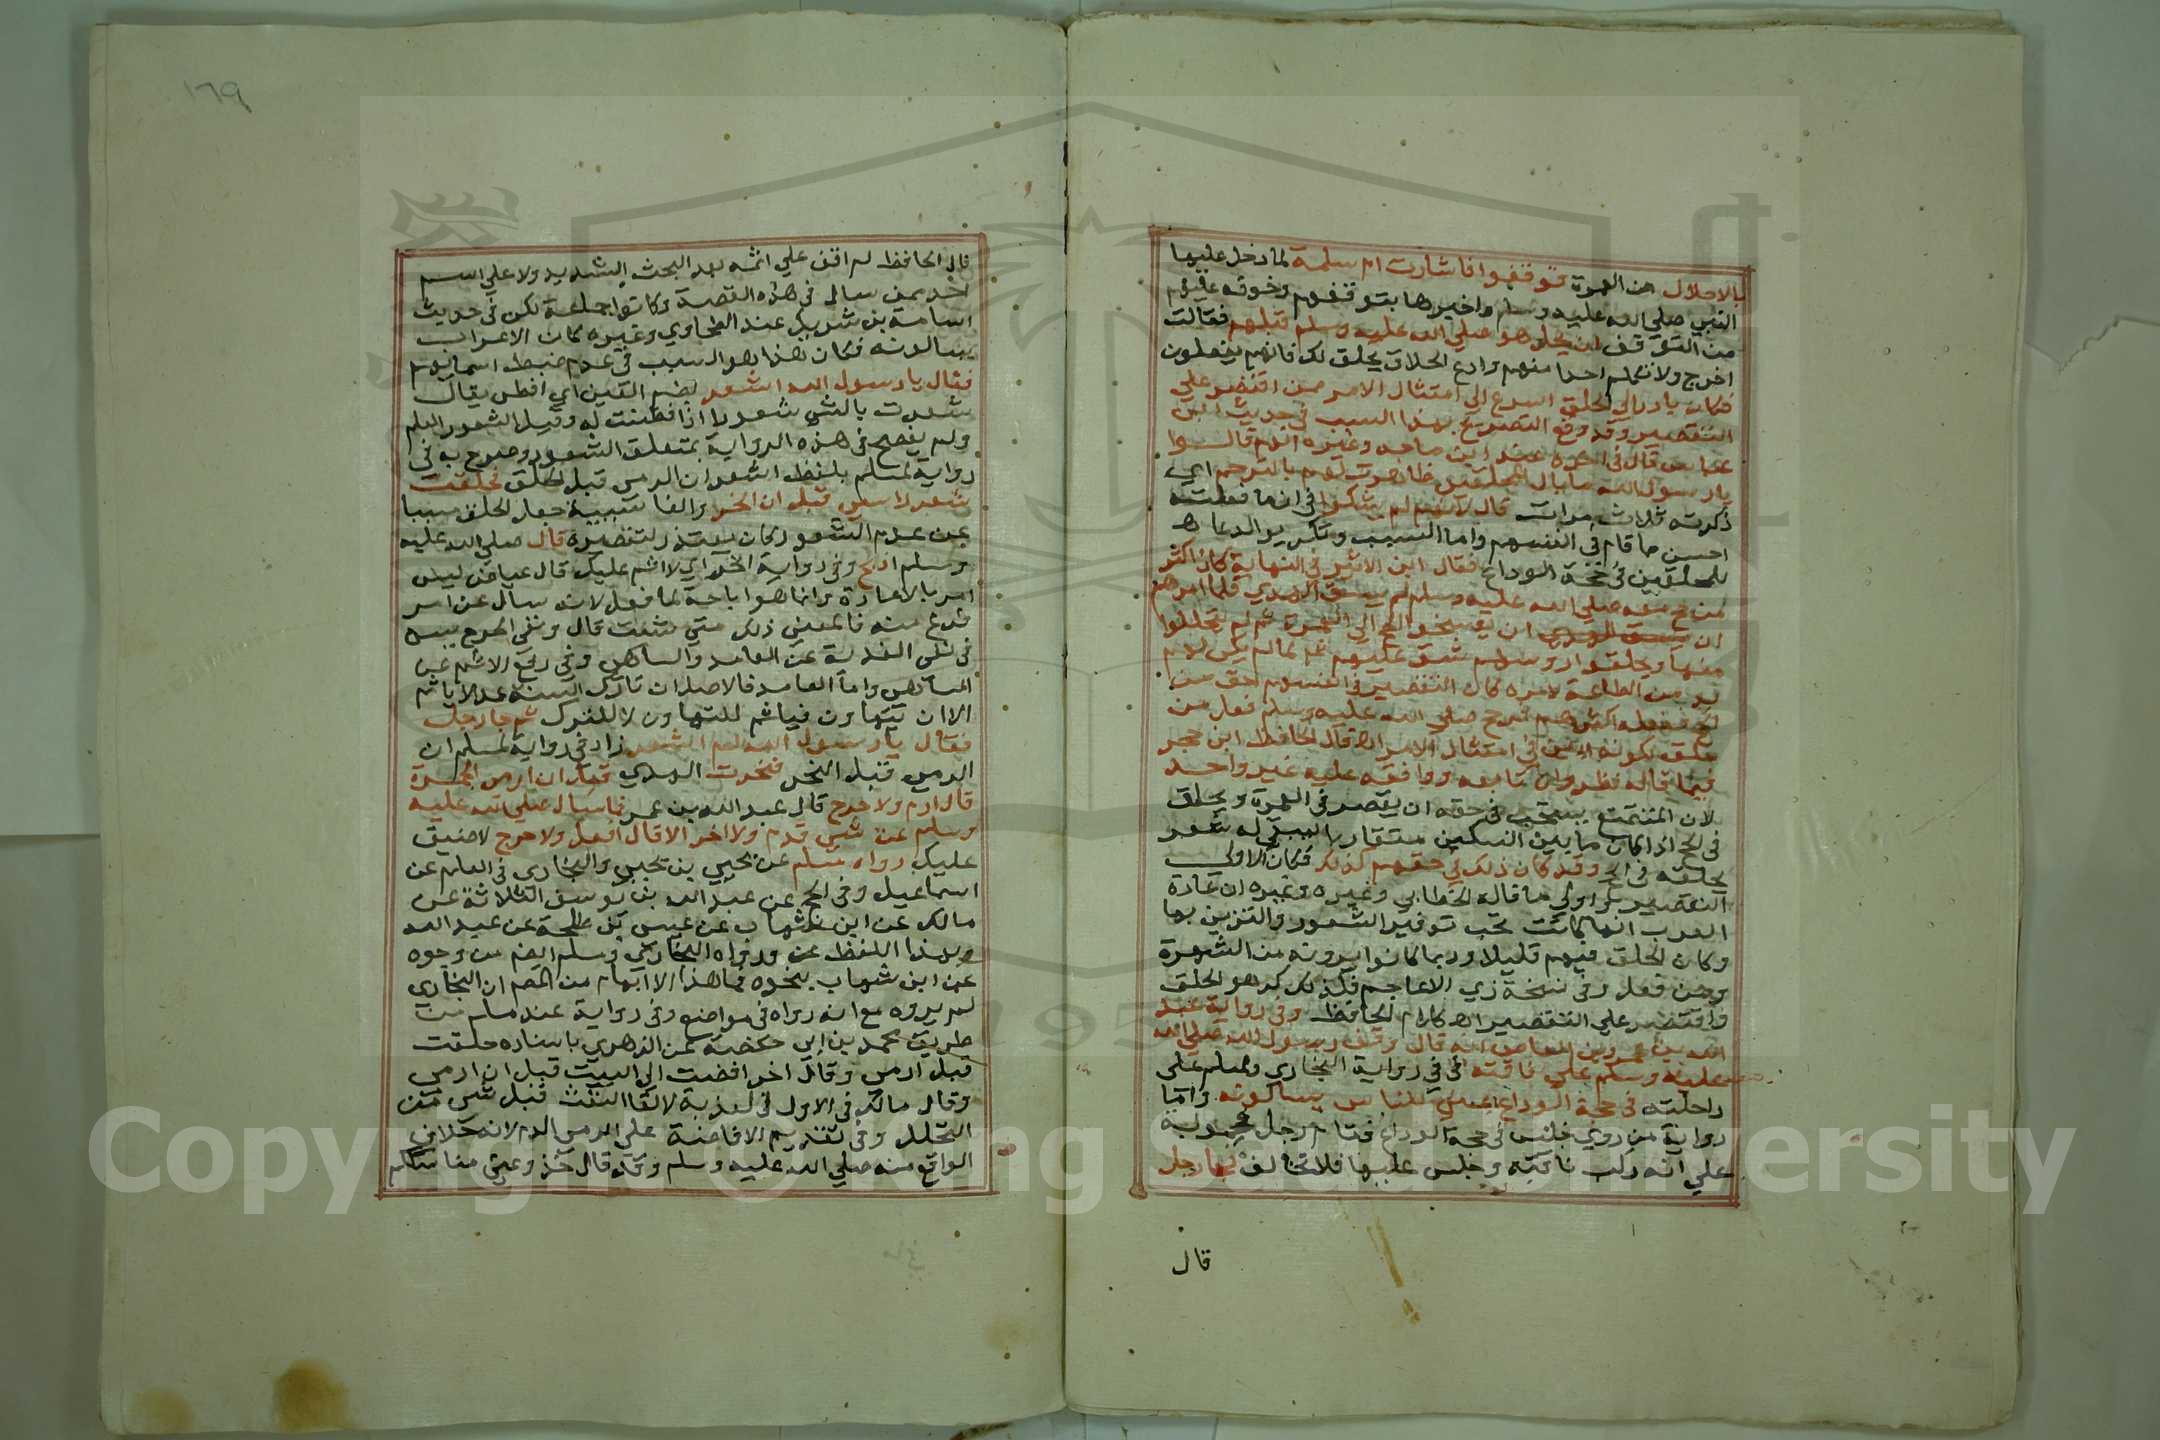 بالاحلال من العمرة توقفوا فاشارت ام سلمة لما دخل عليها
النبي صلى الله عليه وسلم واخبرها بتوقفهم وخوفه عليهم
من التوقف ان يحل هو صلى الله عليه وسلم قبلهم فقالت
اخرج ولا تكلم احدا منهم وادع الحلاق يحلق لك فانهم يفعلون
فكان بادر الى الحلق اسرع الى امتثال الامر ممن اقتصر على
التقصير وقد وقع التصريح بهذا السبب في حديث ابن
عباس قال في اخره عند ابن ماجه وغيره انهم قالوا
يا رسول الله ما بال المحلقين ظاهرت لهم بالترحم اي
ذكرته ثلاث مرات قال لانهم لم يشكوا في ان ما فعلته
احسن ما قام في انفسهم واما السبب وتكرير الدعا
للمحلقين في حجة الوداع فقال ابن الاثير في النهاية كان اكثر
من حج معه صلى الله عليه وسلم لم يسق الهدي فلما امرهم
ان يفسخوا الحج الى العمرة ثم لم يتحللوا
منها ويحلقوا رؤسهم شق عليهم ثم لما لم يكن لهم
بد من الطاعة لامره كان التقصير في انفسهم اخف من
الحلق ففعله اكثرهم فرجح صلى الله عليه وسلم فعل من
حلق لكونه ابين في امتثال الامر اه قال الحافظ ابن حجر
فيما قاله نظر وان تابعه ووافقه عليه غير واحد
لان المتمتع يستحب في حقه ان يقصر في العمرة ويحلق
في الحج اذا كان ما بين النسكين متقاربا ليبقى له شعر
يحلقه في الحج وقد كان ذلك في حقهم كذلك فكان الاولى
التقصير واولى ما قاله الخطابي وغيره وغيره ان عادة
العرب انها كانت تحب توفير الشعور والتزين بها
وكان الحلق فيهم قليلا وربما كانوا يرونه من الشهرة
ومن فعل وفي نسخة زي الاعاجم فلذلك كرهوا الحلق
واقتصر على التقصير اه كلام الحافظ وفي رواية عبد
الله بن عمرو بن العاص انه قال وقف رسول الله صلى الله
عليه وسلم على ناقته في رواية البخاري ولمسلم على
راحلته في حجة الوداع بمنى للناس يسالونه واما
رواية من روى جلس في حجة الوداع فقام رجل محمولة
على انه ركب ناقته وجلس عليها فلا تخالف فجا رجل
قال
١٦٩
قال الحافظ لم اقف على اسمه بعد البحث الشديد ولا على اسم
احد ممن سال في هذه القصة وكانوا جماعة لكن في حديث
اسامة بن شريك عند الطحاوي وغيره كان الاعراب
يسالونه فكان هذا هو السبب في عدم ضبط اسمائهم
فقال يا رسول الله لم اشعر بضم العين اي افطن يقال
شعرت بالشي شعورا اذا فطنت له وقيل الشعور العلم
ولم يفصح في هذه الرواية بمتعلق الشعور وصرح به في
رواية لمسلم بلفظ لم اشعر ان الرمي قبل الحلق فحلقت
شعر راسي قبل ان انحر والفا سببية جعل الحلق مسببا
عن عدم الشعور وكان يعتذر لتقصيره قال صلى الله عليه
وسلم اذبح وفي رواية انحر اي لا اثم عليك قال عياض ليس
امر بالاعادة وانما هو اباحة لما فعل لانه سال عن امر
فرغ منه فالمعنى ذلك متى شئت قال ونفي الحرج بين
في نفي الفدية عن العامد والساهي وفي رفع الاثم عن
الساهي واما العامد فالاصل ان تارك السنة عمدا لا ياثم
الا ان يتهاون فياثم للتهاون لا للترك ثم جا رجل
فقال يا رسول الله لم اشعر زاد في رواية لمسلم ان
الرمي قبل النحر فنحرت الهدي قبل ان ارمي الجمرة
قال ارم ولا حرج قال عبد الله بن عمر فما سال صلى الله عليه
وسلم عن شي قدم ولا اخر الا قال افعل ولا حرج لا ضيق
عليك رواه مسلم عن يحيى بن يحيى والبخاري في العلم عن
اسماعيل وفي الحج عن عبد الله بن يوسف الثلاثة عن
مالك عن ابن شهاب عن عيسى بن طلحة عن عبد الله
بهذا اللفظ عنه ورواه البخاري ومسلم ايضا من وجوه
عن ابن شهاب بنحوه فما هذا الا ايهام من المص ان البخاري
لم يروه مع انه رواه في مواضع وفي رواية عند مسلم من
طريق محمد بن ابي حفصة عن الزهري باسناده حلقت
قبل ارمي وقال اخر افضت الى البيت قبل ان ارمي
وقال مالك في الاول الفدية لالقا التفث قبل شي من
التحلل وفي تقديم الافاضة على الرمي الدم لانه خلاف
الواقع منه صلى الله عليه وسلم وقد قال خذوا عني مناسككم